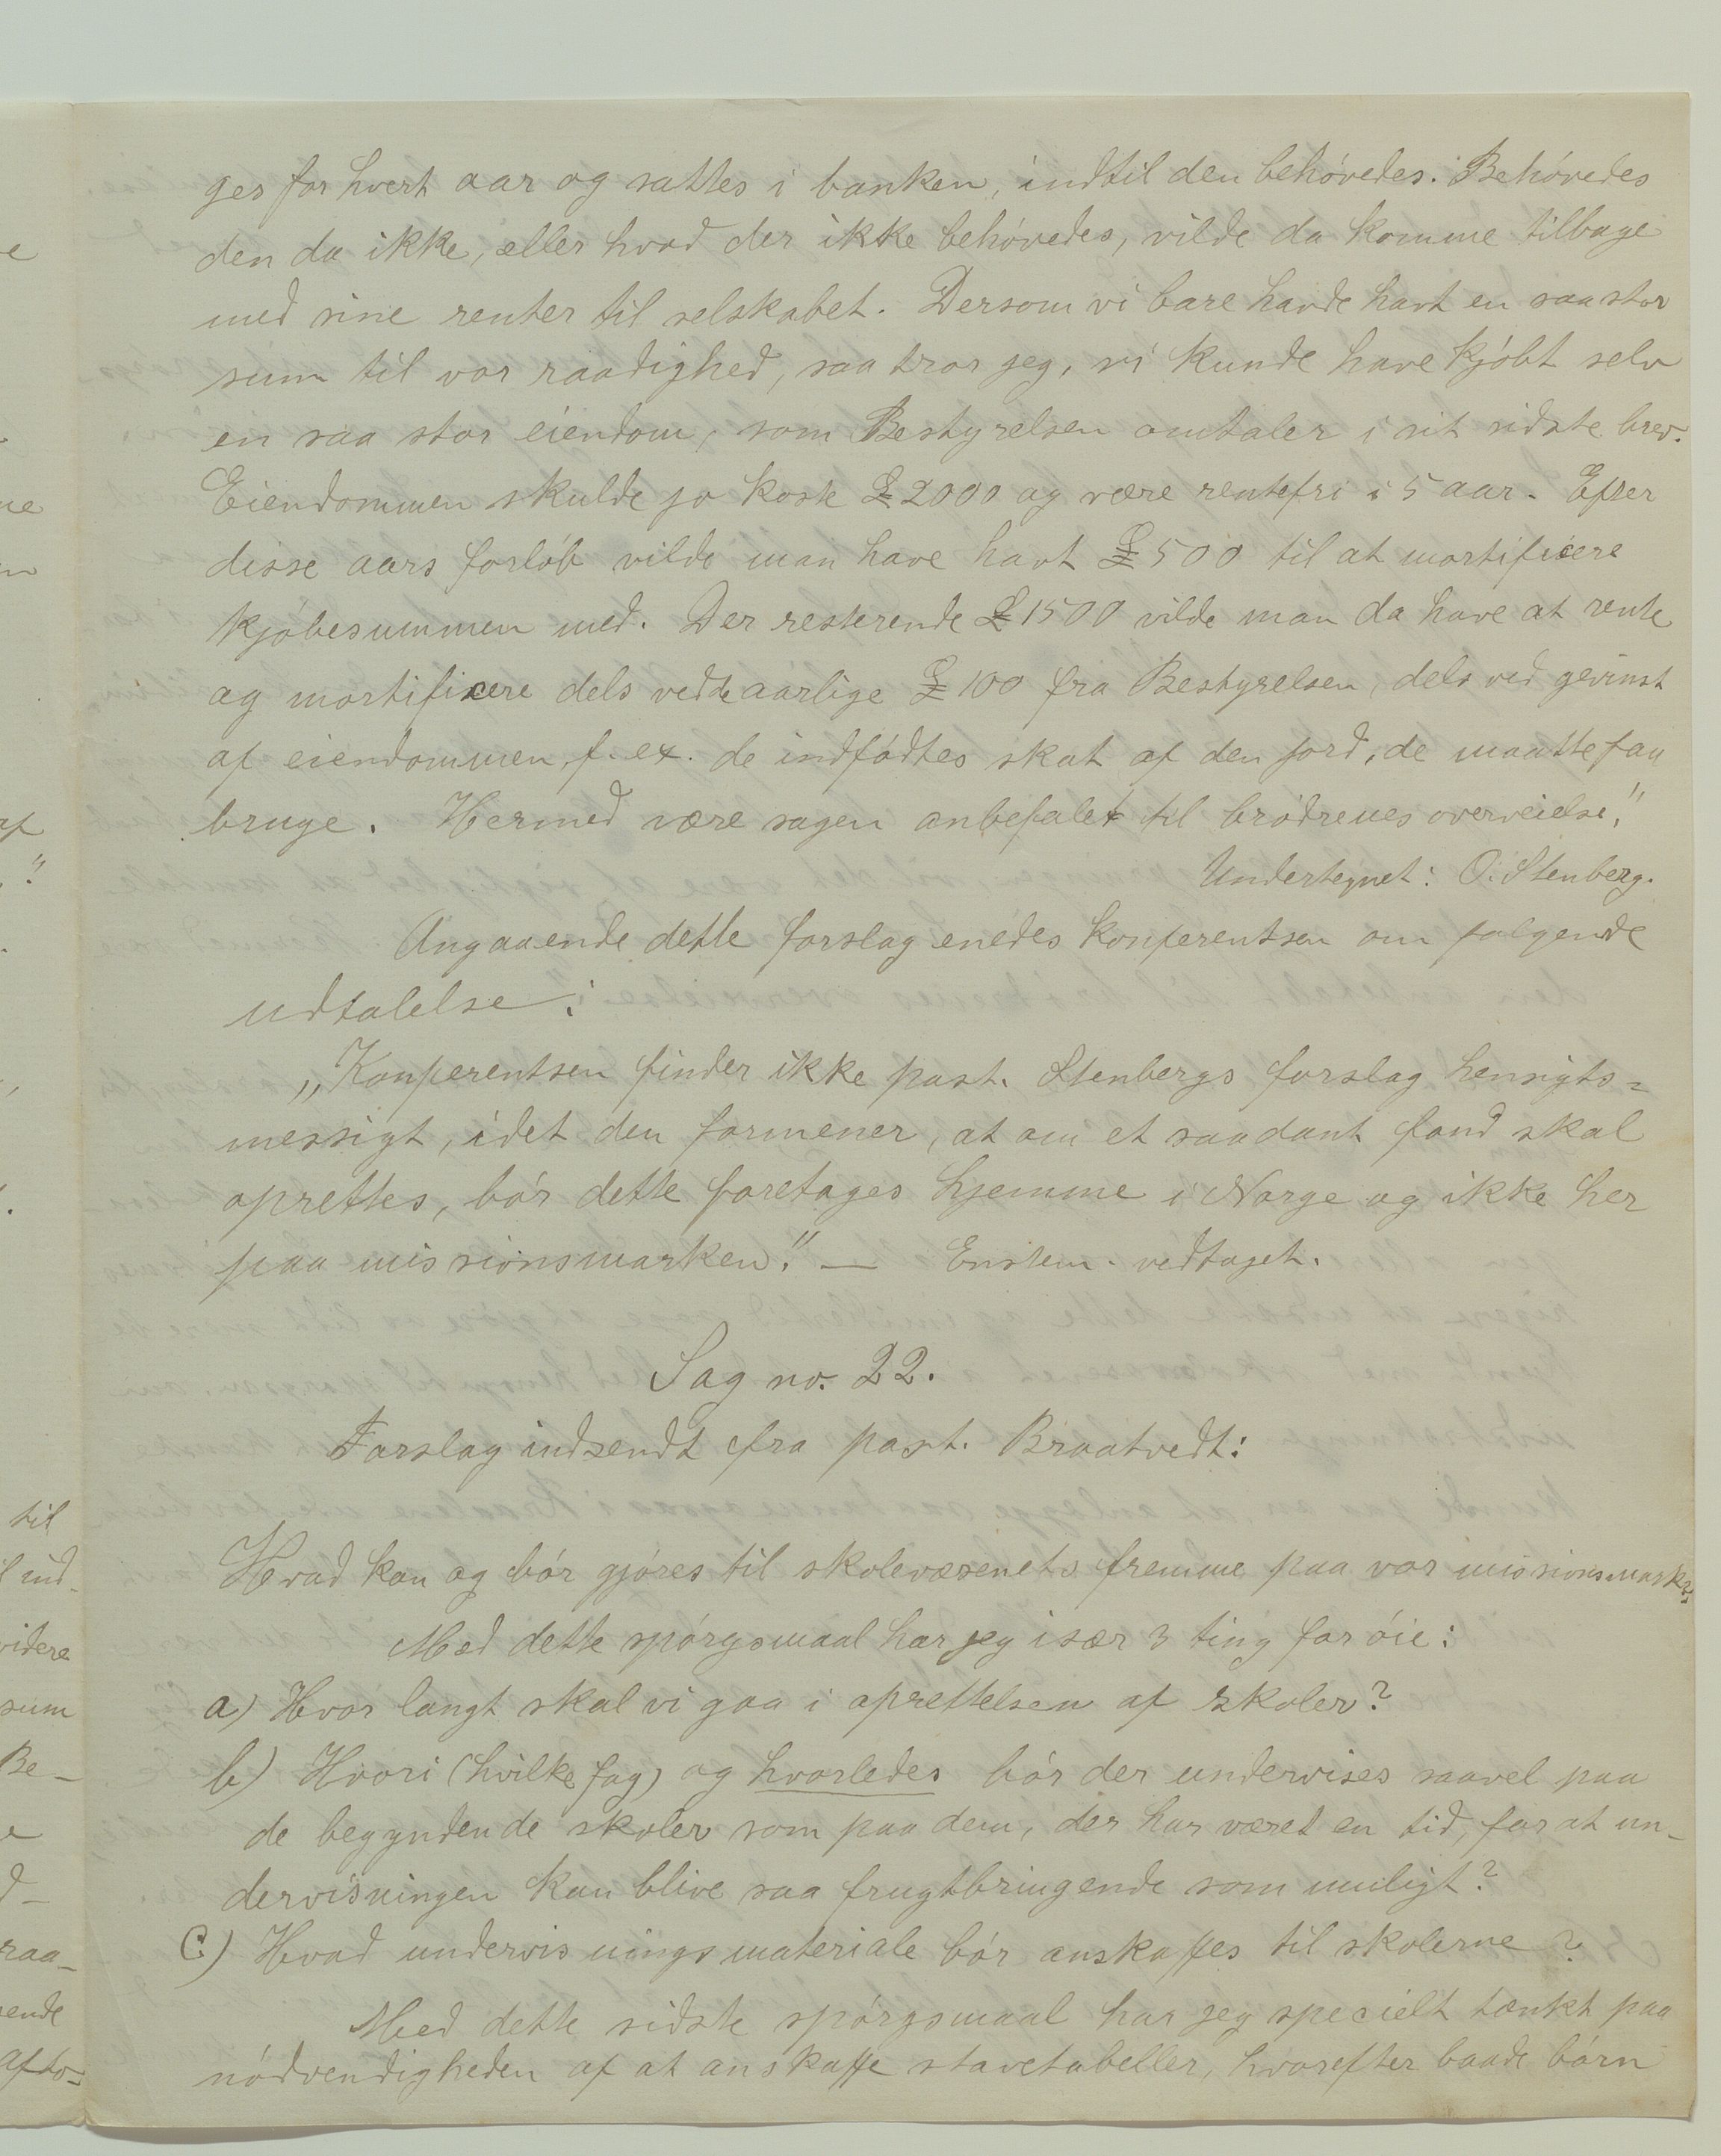 ges for hvert aar og sattes i banken, indtil den behóvedes. Behóvedes
den da ikke, eller hvad der ikke behóvedes, vilde da komme tilbage
med sine renter til selskabet. Dersom vi bare havde havt en saa stor
sum til vor raadighed, saa tror jeg, vi kunde have kjóbt selv
en saa stor eiendom, som Bestyrelsen omtaler i sit sidste brev.
Eiendommen skulde jo koste £2000 og være rentefri i 5 aar. Efter
disse aars forlób vilde man have havt £500 til at mortificere
kjóbesummen med. Der resterende £1500 vilde man da have at rente
og mortificere dels ved de aarlige £100 fra Bestyrelsen, dels ved gevinst
af eiendommen f. ex. de indfódtes skat af den jord, de maatte faa
bruge. Hermed være sagen anbefalet til bródrenes overveielse."
Undertegnet: O. Stenberg.
Angaaende dette forslag enedes konferentsen om folgende
udtalelse:
„Konferentsen finder ikke past. Stenbergs forslag hensigts=
messigt, idet den formener, at om et saadant fond skal
oprettes, bór dette foretages hjemme i Norge og ikke her
paa missionsmarken." — Enstem. vedtaget.
Sag no. 22.
Forslag indsendt fra past. Braatvedt:
Hvad kan og bór gjóres til skolevæsenets fremme paa vor missionsmark?
Med dette spórgsmaal har jeg især 3 ting for óie:
a) Hvor langt skal vi gaa i oprettelsen af skoler?
b) Hvori (hvilke fag) og hvorledes bór der undervises saavel paa
de begyndende skoler som paa dem, der har været en tid, for at un-
dervisningen kan blive saa frugtbringende som muligt?
C) Hvad undervisningsmateriale bór anskaffes til skolerne?
Med dette sidste spórgsmaal har jeg specielt tænkt paa
nódvendigheden af at anskaffe stavetabeller, hvorefter baade bórn